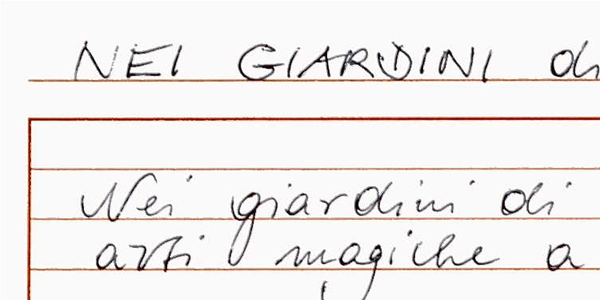 NEI GIARDINI di
Nei giardini di
arti magiche a